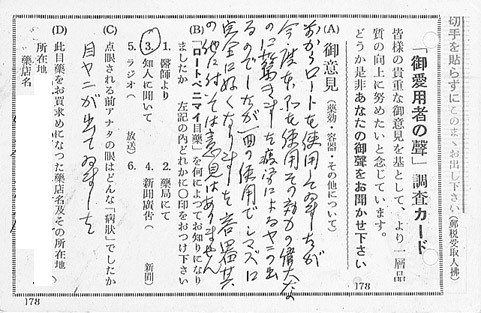 切手を貼らずにこのまゝお出し下さい(郵税受取人拂)
「御愛用者の聲」調査カード
皆様の貴重な御意見を基として、より一層品
質の向上に努めたいと念じています。
どうか是非あなたの御聲をお聞かせ下さい
178
(A) 御意見(薬効・容器・その他について)
前からロートを使用して居ますが
今度
使用その効力の偉大な
のに驚きました
によるヤニの出
るのでしたが一回の使用でシマズに
完全になくなりました
の他に付ては意見はありません
(B)「ロートペニマイ目薬」を何によつてお知りになり
ましたか 左記の内どれかに〇印をおつけ下さい
1. 醫師より 2. 藥局にて
3. 知人に聞いて 4. 新聞廣告( 新聞)
5. ラジオ( 放送) 6.
(C) 点眼される前アナタの眼はどんな「病狀」でしたか
目ヤニが出て居ました
(D) 此目藥をお買求めになつた藥店名及その所在地
所在地
藥店名
178